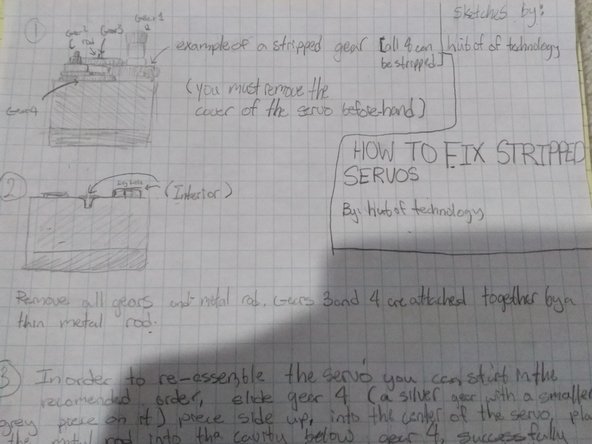 sketches by:
hub of technology
1
Gear 1
Gear 2
rod
Gear 3
Gear 4
example of a stripped gear [all 4 can
be stripped]
(you must remove the
cover of the servo before-hand)
HOW TO FIX STRIPPED
SERVOS
By: hub of technology
2
(Interior)
Remove all gears and metal rod. Gears 3 and 4 are attached together by a
thin metal rod.
3 In order to re-assemble the servo you can start in the
recomended order, slide gear 4 (a silver gear with a smaller
grey piece on it) piece side up, into the center of the servo, pla
the metal rod into the cavity below gear 4, successfully